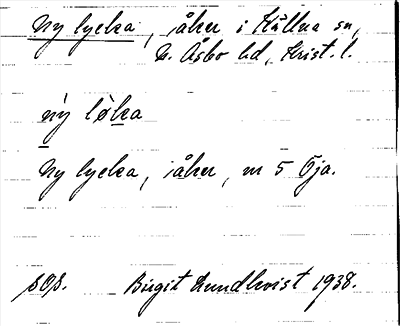 Ny lycka, åker i Källna sn,
N. Åsbo hd, Krist. l.
ny løka
Ny lycka, åker, m 5 Öja.
SOS. Birgit Lundkvist 1938.